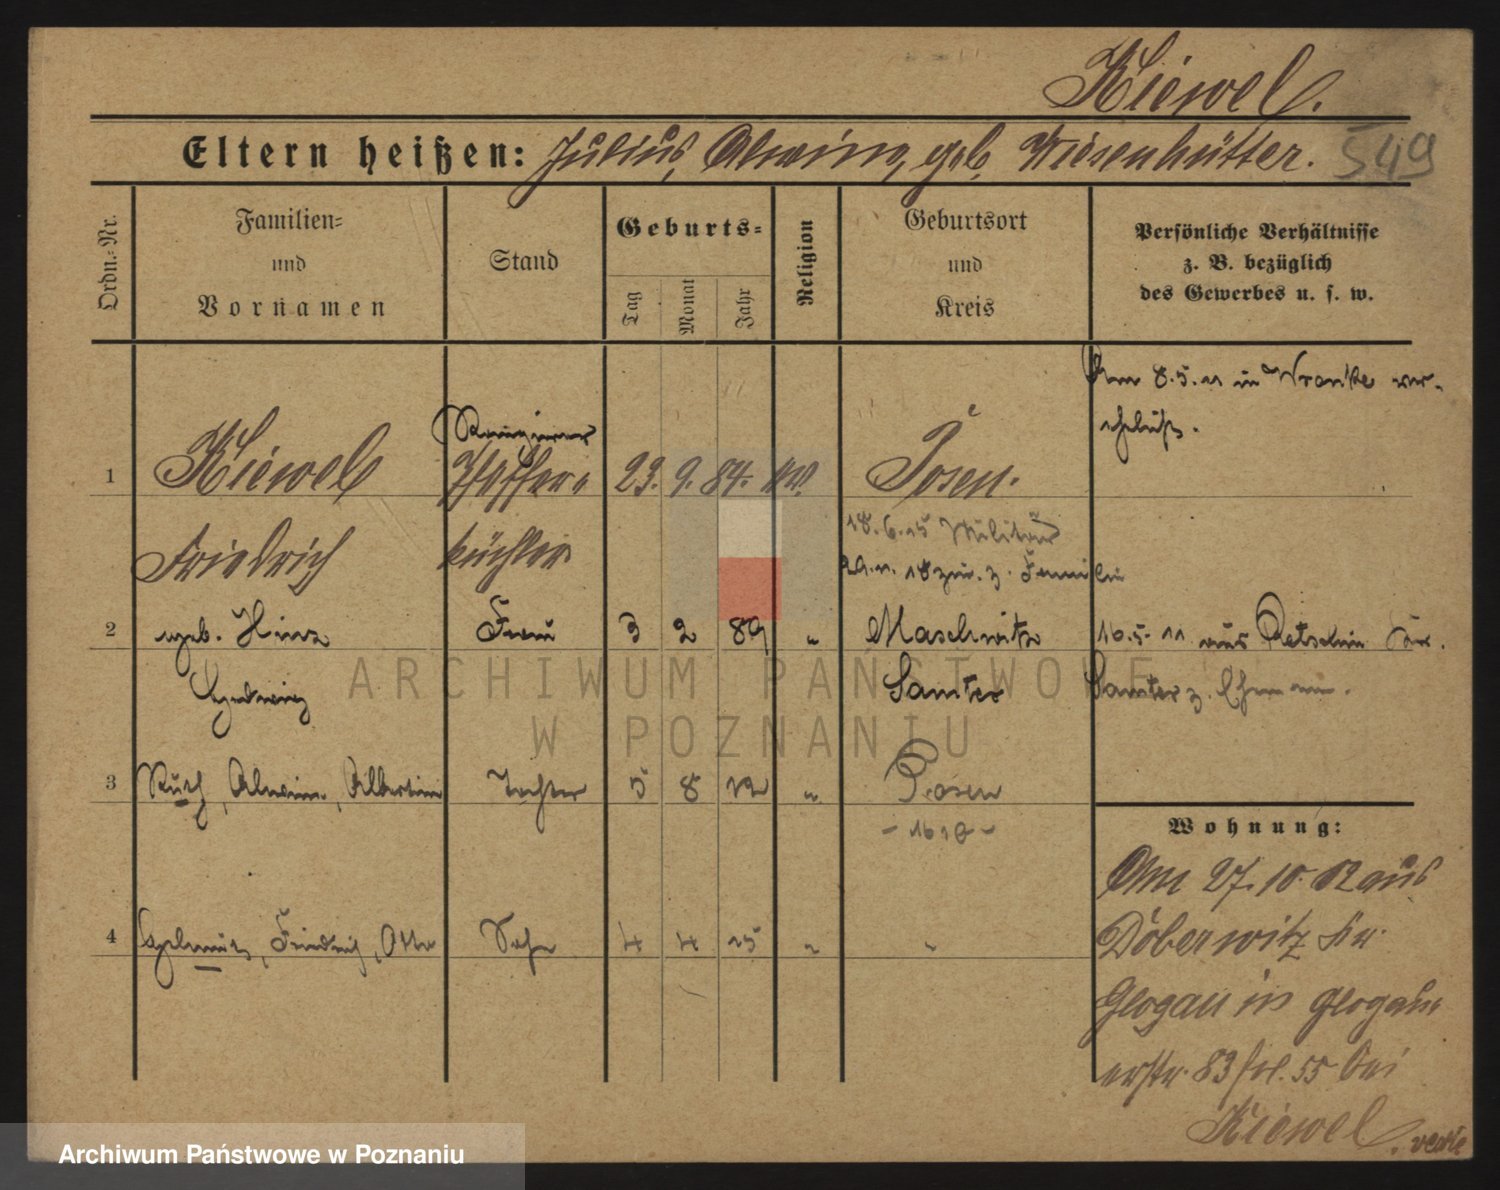 Kiewel.
Eltern heißen: Julius, Alwine, geb. Wiesenhütter. 549
Ordn.-Nr.
Familien-
und
Vornamen
Stand
Geburts-
Tag
Monat
Jahr
Religion
Geburtsort
und
Kreis
Persönliche Verhältnisse
z. B. bezüglich
des Gewerbes u. s. w.
Am 8.5.11 in Wronke ver-
ehelicht.
Rangierer
1 Kiewel 23. 9. 84. ev. Posen.
Friedrich küchler
18.6.15 Militär
29.11.18 zur. z. Familie
2 geb. Hinz Frau 3 2 89 " Maschwitz 16.5.11 aus Retschin Kr.
Hedwig Samter Samter z. Ehemann.
3 Ruth, Alwine, Albertine Tochter 5 8 12 " Posen
- 1612 -
4 Helmut, Friedrich, Otto Sohn 4 4 15 " "
Wohnung:
Am 27.10. 12 aus
Döberwitz Kr.
Glogau in Glogau
erstr. 83 bei
Kiewel. verte
ARCHIWUM PAŃSTWOWE
W POZNANIU
Archiwum Państwowe w Poznaniu